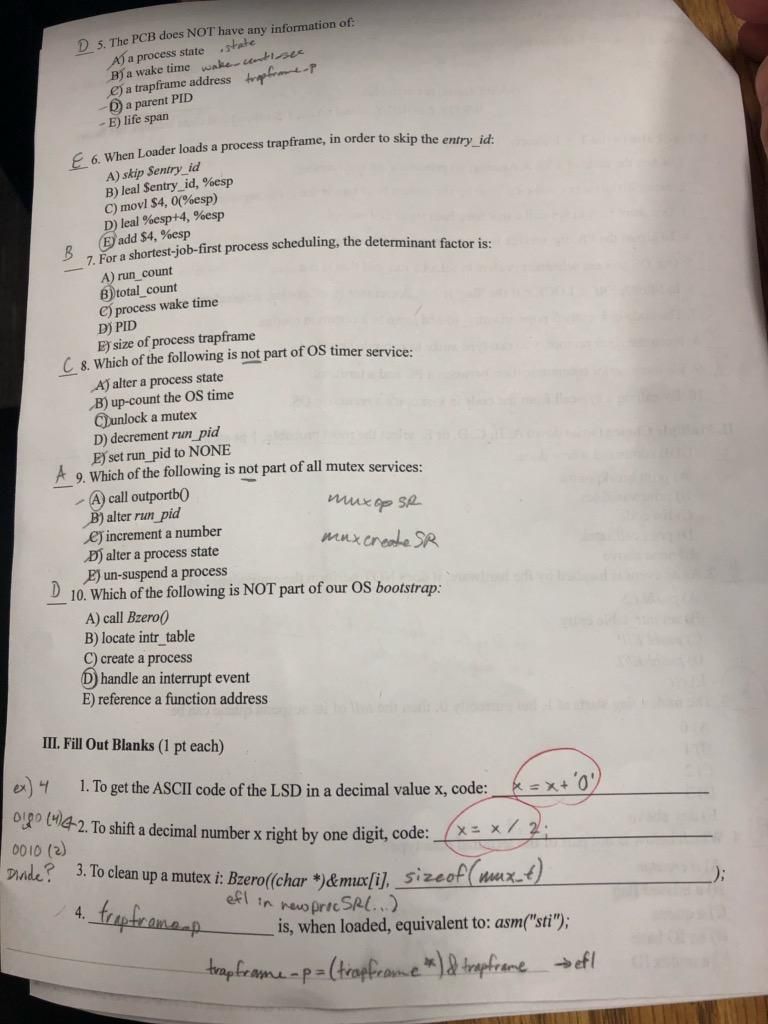 D 5. The PCB does NOT have any information of:
A) a process state .state
B) a wake time
C) a trapframe address trapframe-p
D) a parent PID
- E) life span
E 6. When Loader loads a process trapframe, in order to skip the entry_id:
A) skip $entry_id
B) leal $entry_id, %esp
C) movl $4, 0(%esp)
D) leal %esp+4, %esp
E) add $4, %esp
B 7. For a shortest-job-first process scheduling, the determinant factor is:
A) run_count
B) total_count
C) process wake time
D) PID
E) size of process trapframe
C 8. Which of the following is not part of OS timer service:
A) alter a process state
B) up-count the OS time
C) unlock a mutex
D) decrement run_pid
E) set run_pid to NONE
A 9. Which of the following is not part of all mutex services:
- A) call outportb()
B) alter run_pid muxopSR
C) increment a number
D) alter a process state muxcreateSR
E) un-suspend a process
D 10. Which of the following is NOT part of our OS bootstrap:
A) call Bzero()
B) locate intr_table
C) create a process
D) handle an interrupt event
E) reference a function address
III. Fill Out Blanks (1 pt each)
ex) 4 1. To get the ASCII code of the LSD in a decimal value x, code: x = x + '0'
(4) 2. To shift a decimal number x right by one digit, code: x = x / 2;
0010 (2)
Divide? 3. To clean up a mutex i: Bzero((char *)&mux[i], sizeof(mux_t) );
efl in newprocSR(...)
4. trapframe-p is, when loaded, equivalent to: asm("sti");
trapframe-p = (trapframe*) & trapframe → efl